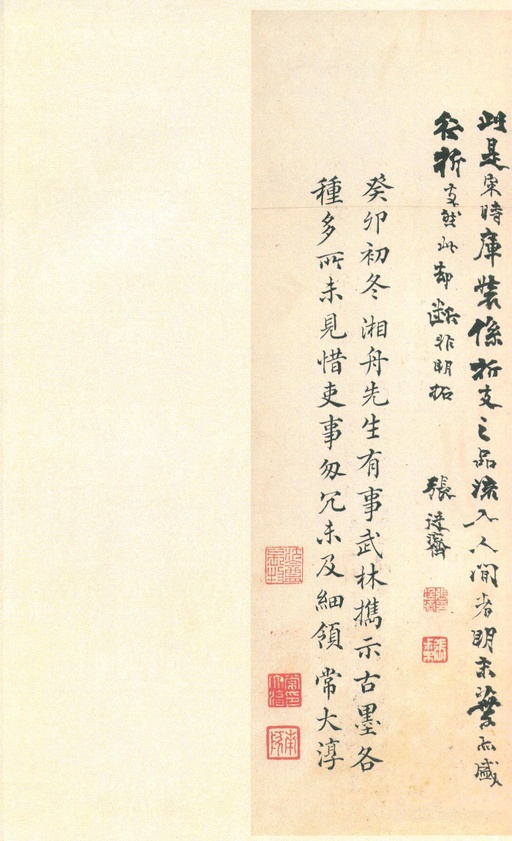 此是宋時庫裝條折支之品流入人間者明末葉亦盛
行折支然此却斷非明拓
張廷齋
癸卯初冬湘舟先生有事武林攜示古墨各
種多所未見惜吏事匆冗未及細領 常大淳